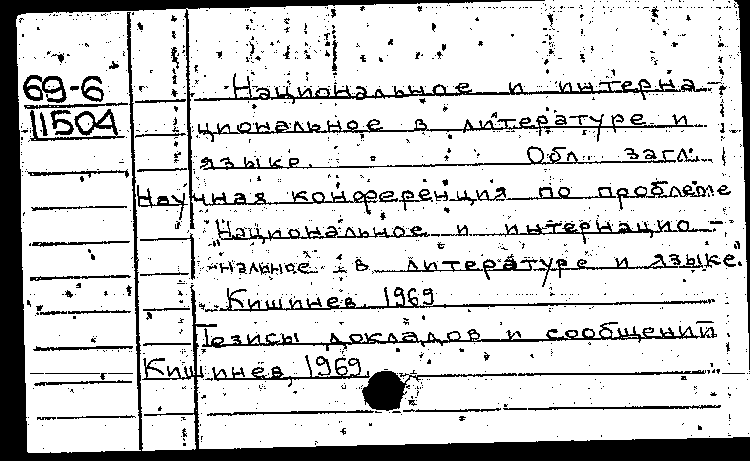 69-6
11504
Национальное и интерна-
циональное в литературе и
языке. Обл. загл.
Научная конференция по проблеме
"Национальное и интернацио-
нальное в литературе и языке."
Кишинев. 1969
Тезисы докладов и сообщений
Кишинев, 1969.